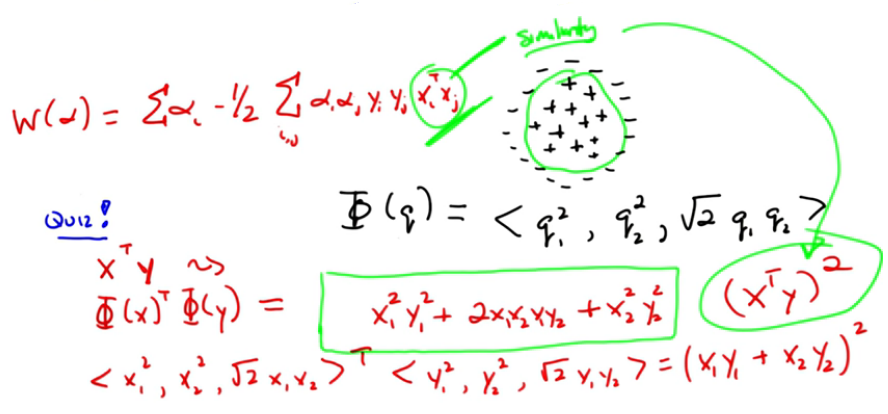 Similarity
W(α) = Σαᵢ - 1/2 Σᵢ,ⱼ αᵢ αⱼ yᵢ yⱼ xᵢᵀxⱼ
Φ(q) = < q₁², q₂², √2 q₁ q₂ >
Quiz!
xᵀy ~>
Φ(x)ᵀ Φ(y) = x₁²y₁² + 2x₁x₂xy₂ + x₂²y₂² (xᵀy)²
< x₁², x₂², √2 x₁x₂ >ᵀ < y₁², y₂², √2 y₁y₂ > = (x₁y₁ + x₂y₂)²